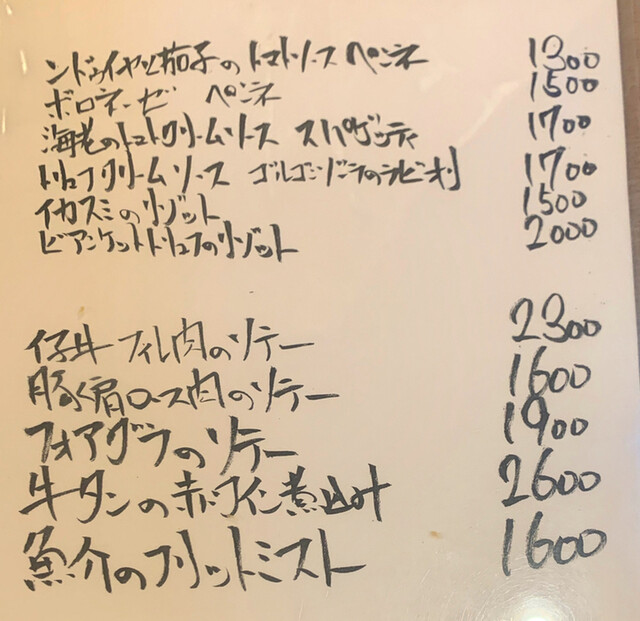 ンドゥイヤと茄子のトマトソース ペンネ 1300
ボロネーゼ ペンネ 1500
海老のトマトクリームソース スパゲッティ 1700
トリュフクリームソース ゴルゴンゾーラのラビオリ 1700
イカスミのリゾット 1500
ビアンケットトリュフのリゾット 2000
仔牛フィレ肉のソテー 2300
豚肩ロース肉のソテー 1600
フォアグラのソテー 1900
牛タンの赤ワイン煮込み 2600
魚介のフリットミスト 1600